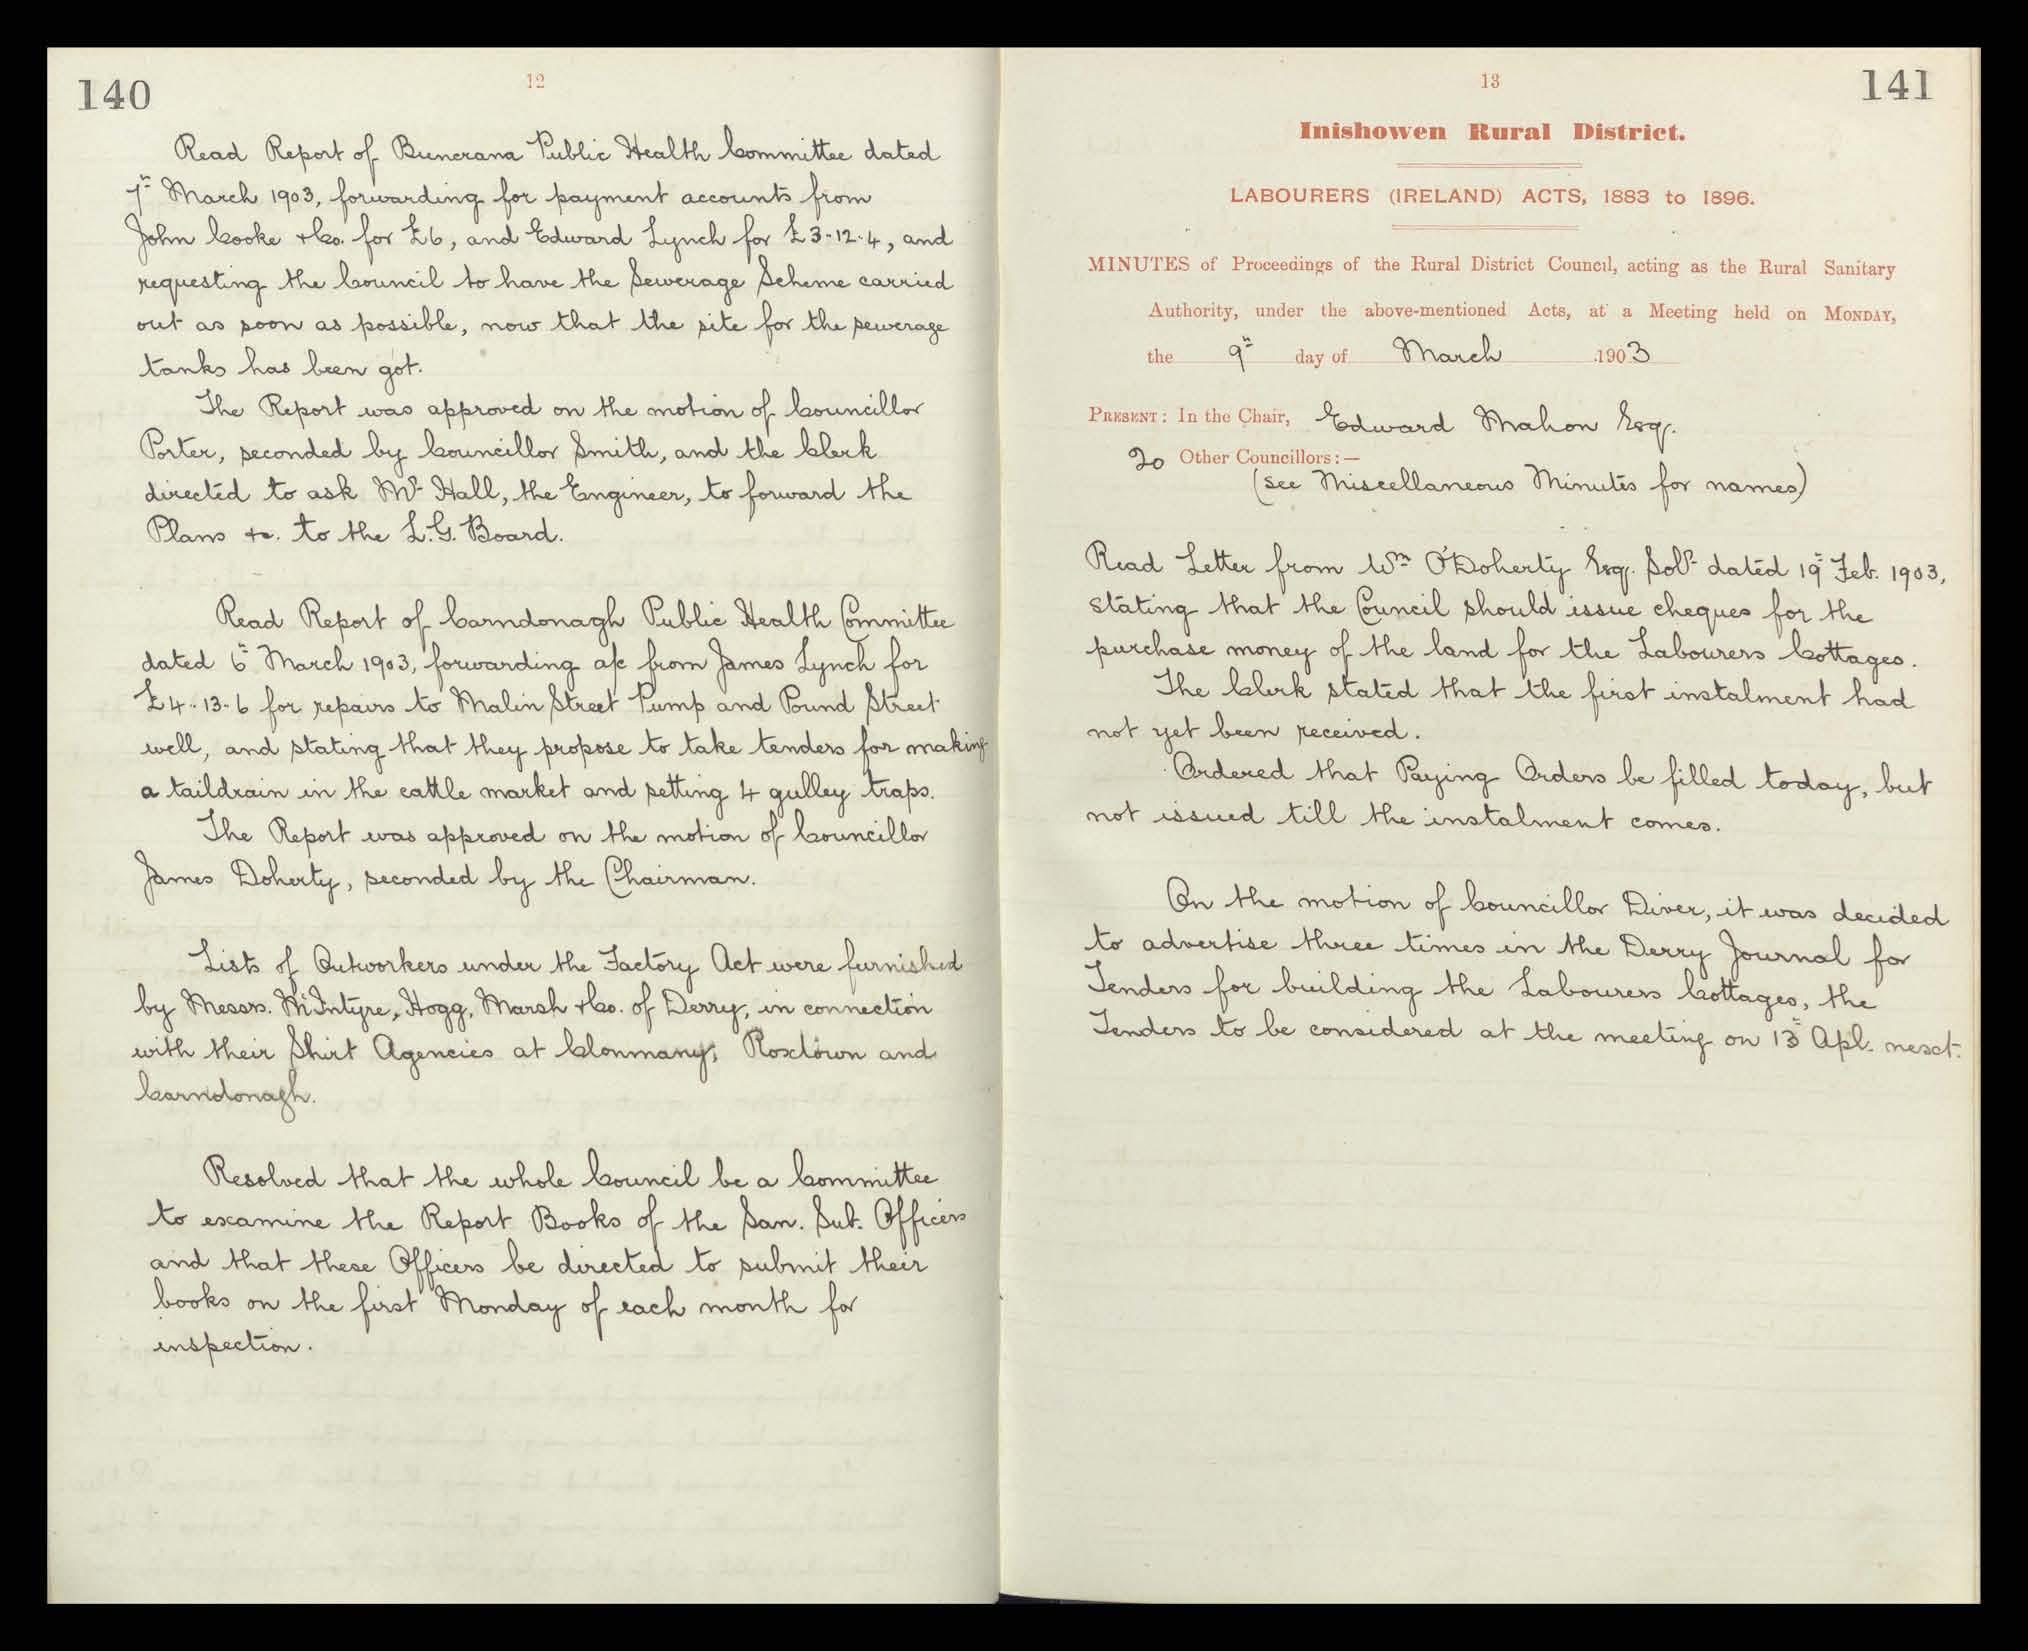 140
12
Read Report of Buncrana Public Health Committee dated
7th March 1903, forwarding for payment accounts from
John Cooke & Co. for £6, and Edward Lynch for £3-12-4, and
requesting the Council to have the Sewerage Scheme carried
out as soon as possible, now that the site for the sewerage
tanks has been got.
The Report was approved on the motion of Councillor
Porter, seconded by Councillor Smith, and the Clerk
directed to ask Mr Hall, the Engineer, to forward the
Plans &c. to the L.G. Board.
Read Report of Carndonagh Public Health Committee
dated 6th March 1903, forwarding a/c from James Lynch for
£4-13-6 for repairs to Malin Street Pump and Pound Street
well, and stating that they propose to take tenders for making
a taildrain in the cattle market and setting 4 gulley traps.
The Report was approved on the motion of Councillor
James Doherty, seconded by the Chairman.
Lists of Outworkers under the Factory Act were furnished
by Messrs. McIntyre, Hogg, Marsh & Co. of Derry, in connection
with their Shirt Agencies at Clonmany, Roxtown and
Carndonagh.
Resolved that the whole Council be a Committee
to examine the Report Books of the San. Sub. Officers
and that these Officers be directed to submit their
books on the first Monday of each month for
inspection.
13
141
Inishowen Rural District.
LABOURERS (IRELAND) ACTS, 1883 to 1896.
MINUTES of Proceedings of the Rural District Council, acting as the Rural Sanitary
Authority, under the above-mentioned Acts, at a Meeting held on MONDAY,
the 9th day of March 1903
PRESENT: In the Chair, Edward Mahon Esq.
20 Other Councillors:—
(see Miscellaneous Minutes for names)
Read Letter from Wm O'Doherty Esq. Solr dated 19th Feb. 1903,
stating that the Council should issue cheques for the
purchase money of the land for the Labourers Cottages.
The Clerk stated that the first instalment had
not yet been received.
Ordered that Paying Orders be filled today, but
not issued till the instalment comes.
On the motion of Councillor Diver, it was decided
to advertise three times in the Derry Journal for
Tenders for building the Labourers Cottages, the
Tenders to be considered at the meeting on 13th Apl. next.